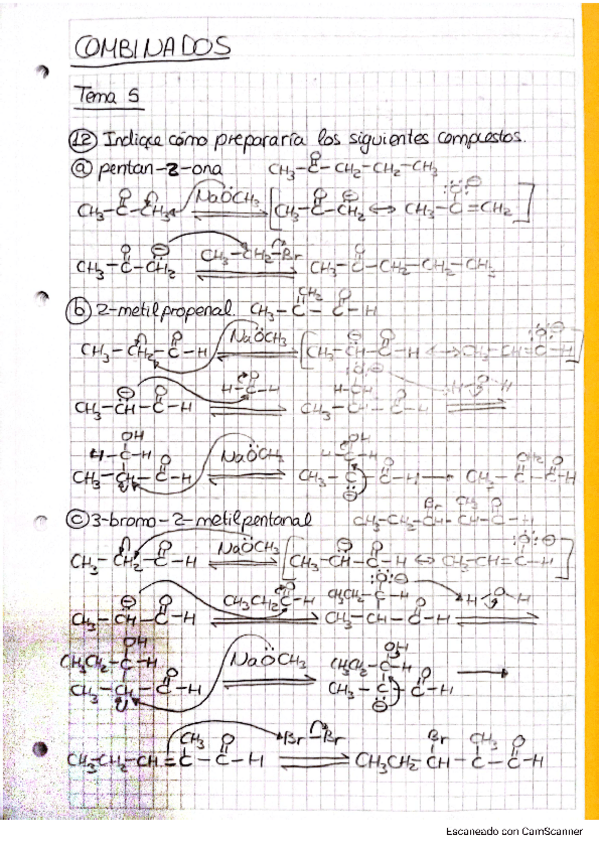 COMBINADOS
Tema 5
12 Indique cómo prepararía los siguientes compuestos.
a pentan-2-ona CH₃-C-CH₂-CH₂-CH₃
O
CH₃-C-CH₃ NaÖCH₃ [CH₃-C-CH₂ ↔ CH₃-C=CH₂]
O O ⊖ :O: ⊖
CH₃-C-CH₂ CH₃-CH₂-Br CH₃-C-CH₂-CH₂-CH₃
b 2-metilpropenal. CH₃-C-C-H
CH₂ O
CH₃-CH₂-C-H NaÖCH₃ [CH₃-CH-C-H ↔ CH₃-CH=C-H]
CH₃-CH-C-H H-C-H CH₃-CH-C-H H-O-H
OH
H-C-H NaÖCH₃ H-C-H
CH₃-CH-C-H CH₃-C-C-H → CH₃-C-C-H
c 3-bromo-2-metilpentanal CH₃-CH₂-CH-CH-C-H
Br CH₃ O
CH₃-CH₂-C-H NaÖCH₃ [CH₃-CH-C-H ↔ CH₃-CH=C-H]
CH₃-CH-C-H CH₃CH₂C-H CH₃CH₂-C-H H-O-H
CH₃-CH-C-H
OH
CH₃CH₂-C-H NaÖCH₃ CH₃CH₂-C-H
CH₃-CH-C-H CH₃-C-C-H →
CH₃ Br-Br Br CH₃ O
CH₃-CH₂-CH=C-C-H CH₃CH₂-CH-C-C-H
Escaneado con CamScanner